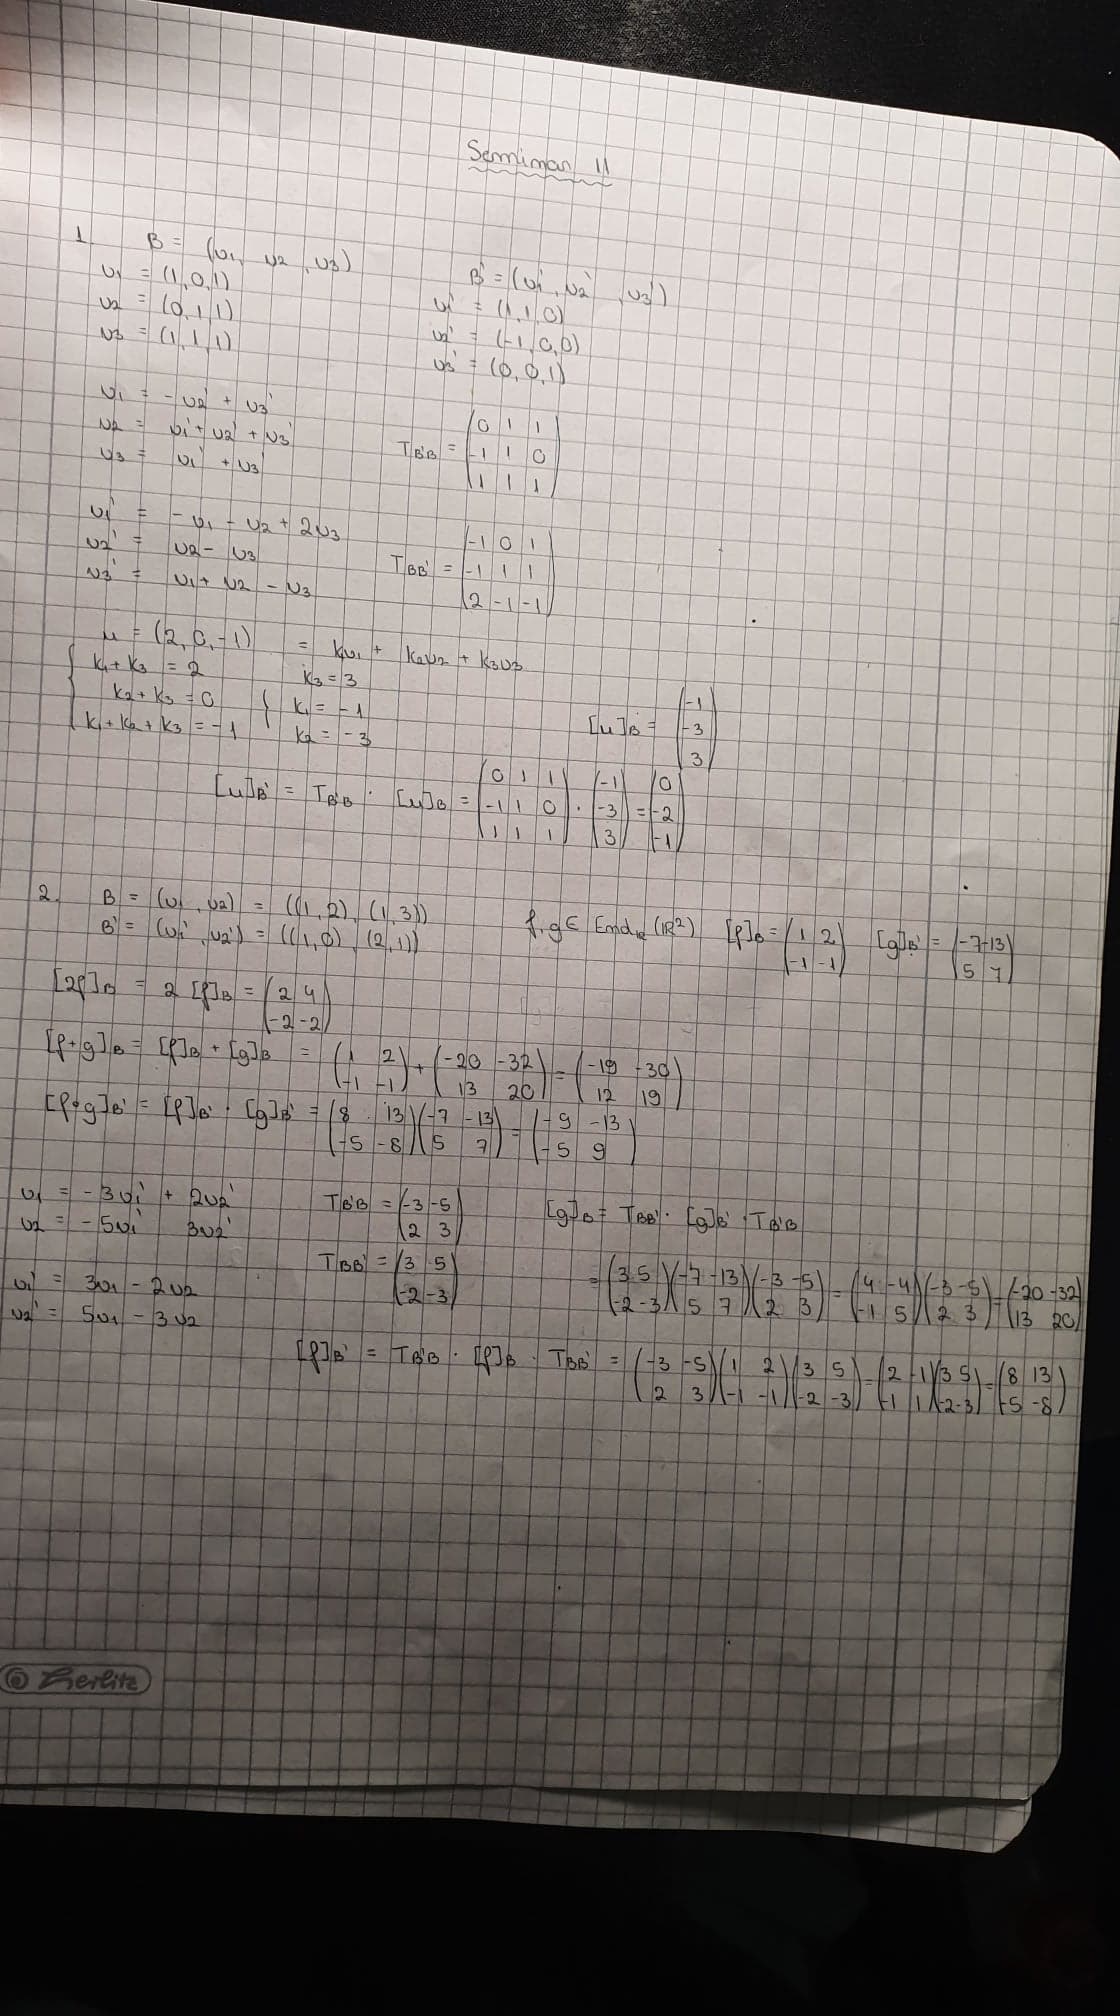 Seminar 11
1. B = (v1, v2, v3)
B' = (v1', v2', v3')
v1 = (1,0,1)
v1' = (1,1,0)
v2 = (0,1,1)
v2' = (-1,0,0)
v3 = (1,1,1)
v3' = (0,0,1)
v1 = -v2' + v3'
v2 = v1' + v2' + v3'
v3 = v1' + v3'
TB'B = (0 1 1
-1 1 0
1 1 1)
v1' = -v1 - v2 + 2v3
v2' = v2 - v3
v3' = v1 + v2 - v3
TBB' = (-1 0 1
-1 1 1
2 -1 -1)
u = (2,0,-1) = k1v1 + k2v2 + k3v3
{ k1 + k3 = 2
k2 + k3 = 0
k1 + k2 + k3 = -1
{ k3 = 3
k1 = -1
k2 = -3
[u]B = (-1
-3
3)
[u]B' = TB'B · [u]B = (0 1 1 / -1 1 0 / 1 1 1) · (-1 / -3 / 3) = (0 / -2 / -1)
2. B = (v1, v2) = ((1,2), (1,3))
B' = (v1', v2') = ((1,0), (2,1))
f, g ∈ EndR (R²) [f]B = (1 2 / -1 -1) [g]B' = (-7 -13 / 5 7)
[2f]B = 2 [f]B = (2 4 / -2 -2)
[f+g]B = [f]B + [g]B = (1 2 / -1 -1) + (-20 -32 / 13 20) = (-19 -30 / 12 19)
[f∘g]B' = [f]B' · [g]B' = (8 13 / -5 -8)(-7 -13 / 5 7) = (-9 -13 / -5 9)
v1 = -3v1' + 2v2'
v2 = -5v1' 3v2'
TB'B = (-3 -5 / 2 3)
[g]B = TBB' · [g]B' · TB'B
TBB' = (3 5 / -2 -3)
= (3 5 / -2 -3)(-7 -13 / 5 7)(-3 -5 / 2 3) = (4 -4 / -1 5)(-3 -5 / 2 3) = (-20 -32 / 13 20)
v1' = 3v1 - 2v2
v2' = 5v1 - 3v2
[f]B' = TB'B · [f]B · TBB' = (-3 -5 / 2 3)(1 2 / -1 -1)(3 5 / -2 -3) = (2 -1 / -1 1)(3 5 / -2 -3) = (8 13 / -5 -8)
herlitz